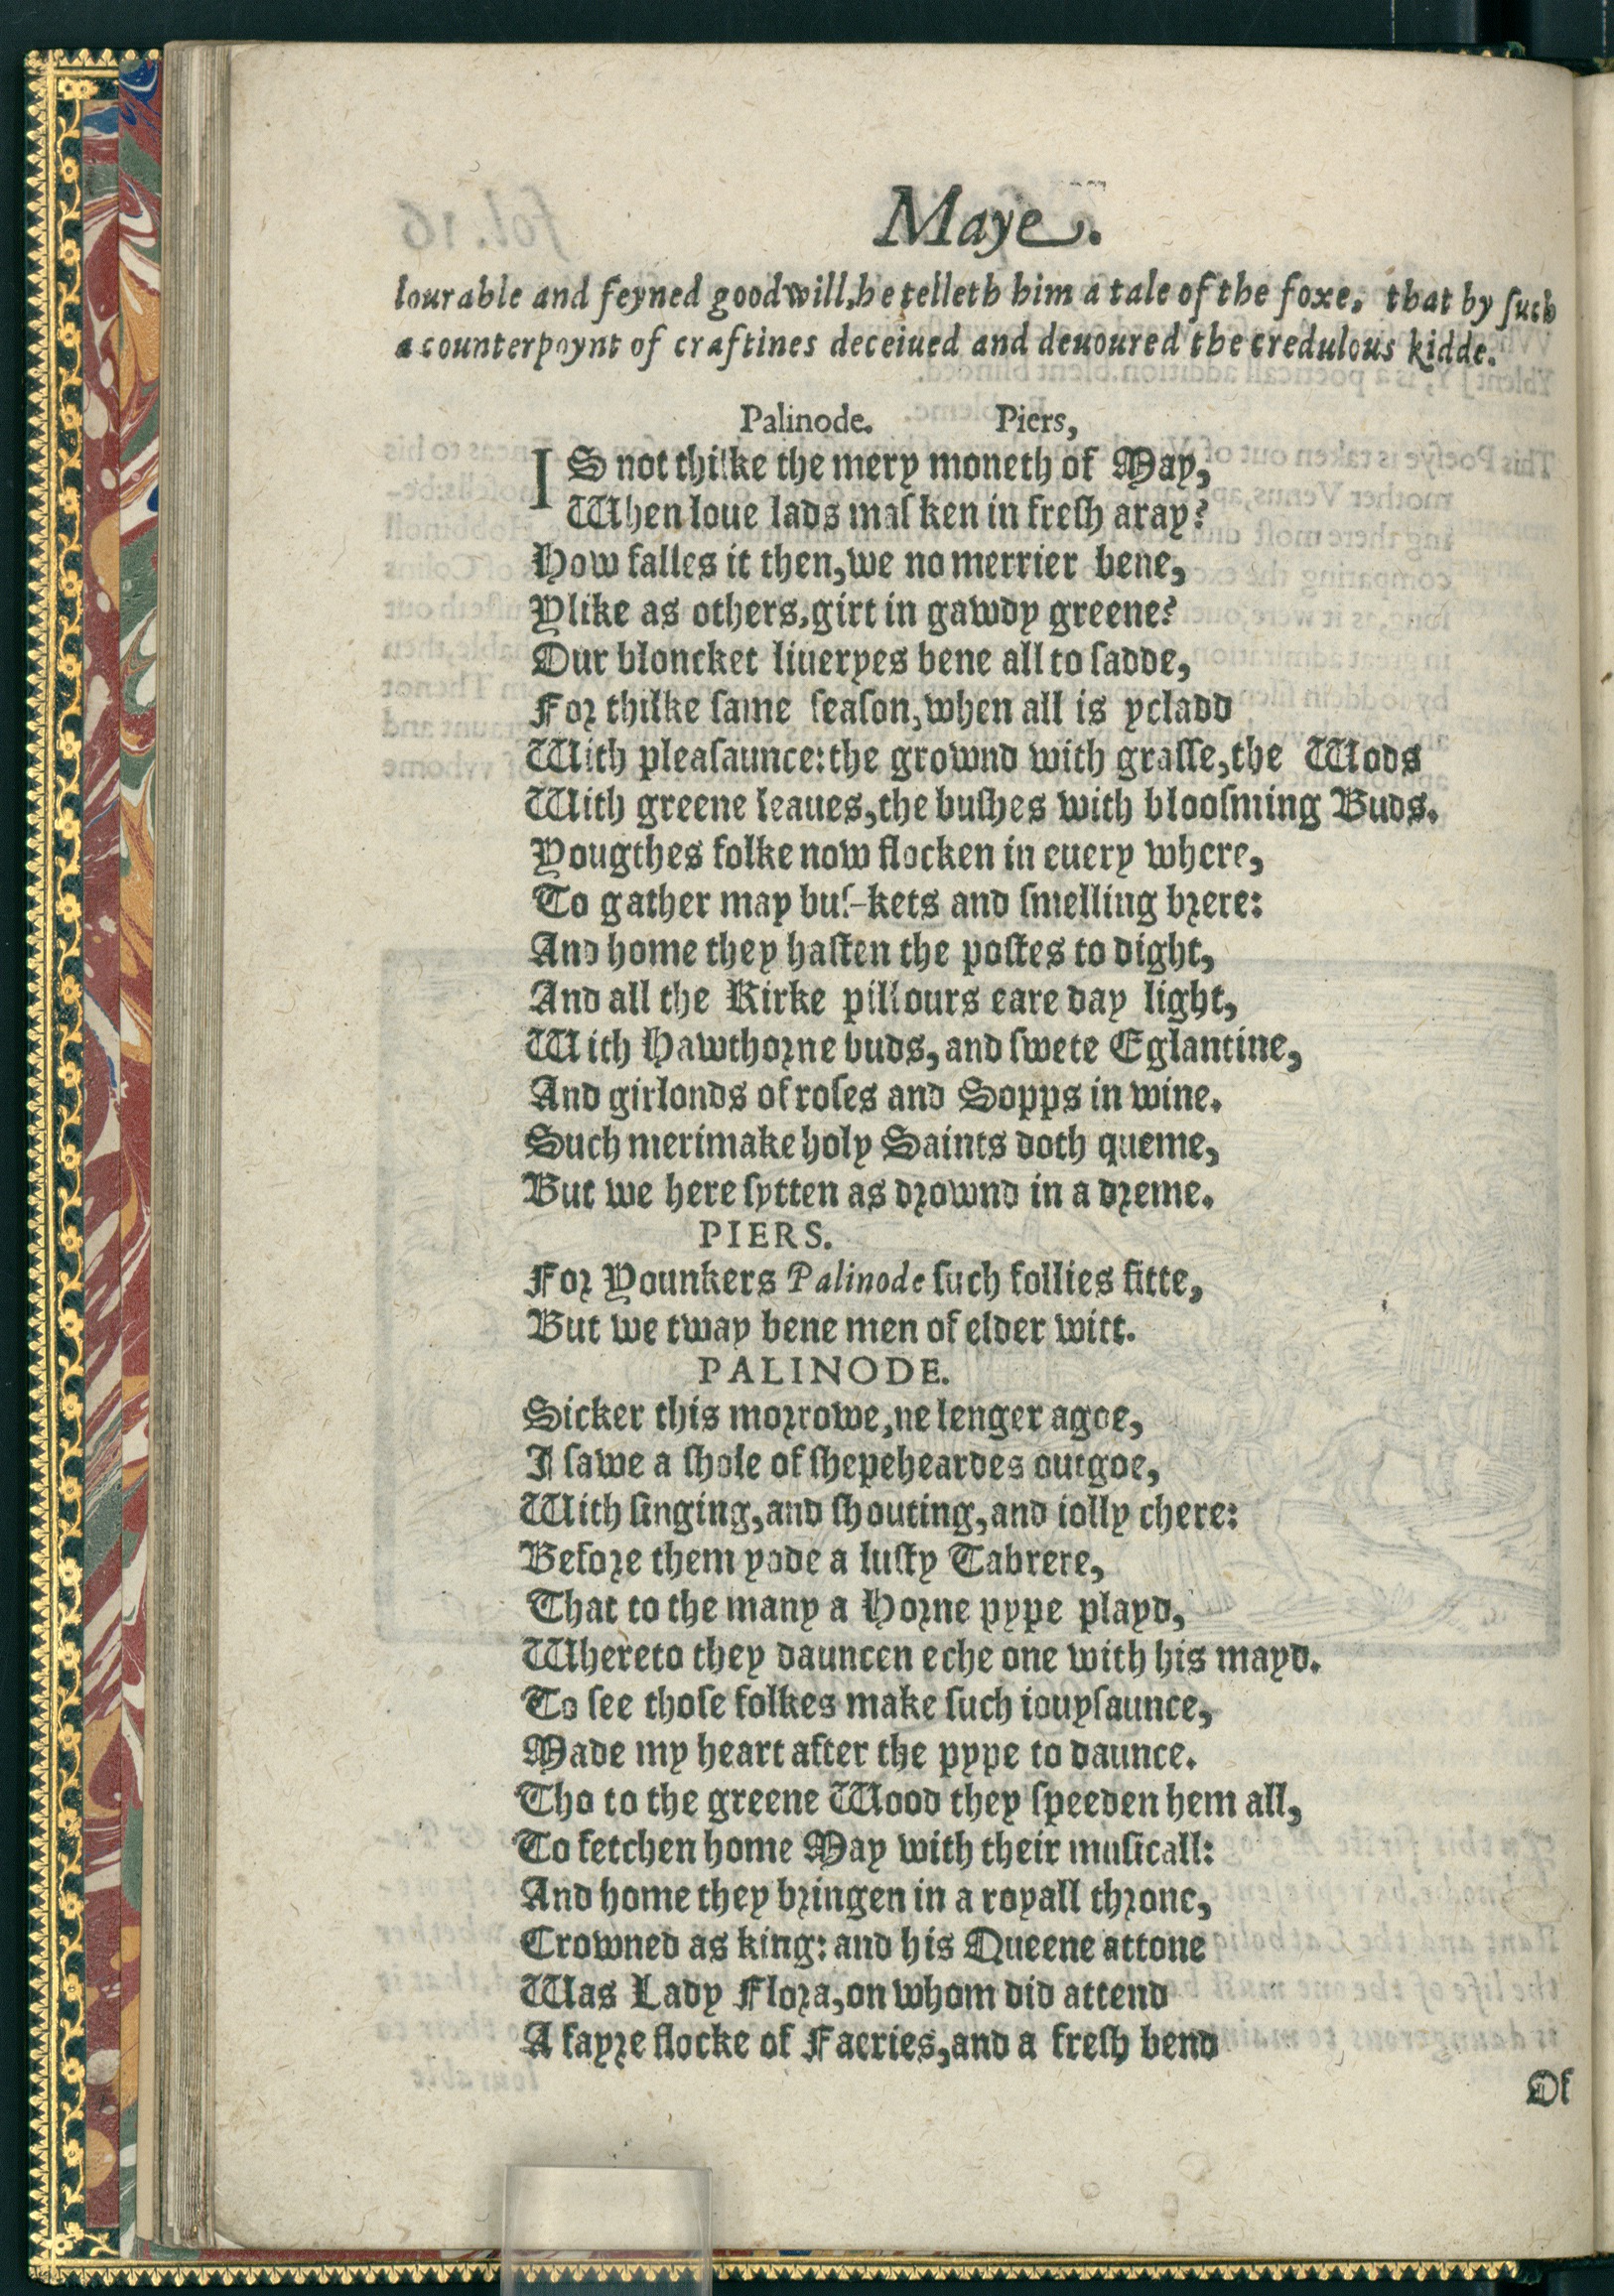 Maye.
lourable and feyned goodwill, he telleth him a tale of the foxe, that by ſuch
a counterpoynt of craftines deceiued and deuoured the credulous kidde.
Palinode. Piers,
IS not thilke the mery moneth of May,
When loue lads maſken in freſh aray?
How falles it then, we no merrier bene,
Ylike as others, girt in gawdy greene?
Our bloncket liueryes bene all to ſadde,
For thilke ſame ſeaſon, when all is ycladd
With pleaſaunce: the grownd with graſſe, the Wods
With greene leaues, the buſhes with blooſming Buds.
Yougthes folke now flocken in euery where,
To gather may buſ-kets and ſmelling brere:
And home they haſten the poſtes to dight,
And all the Kirke pillours eare day light,
With Hawthorne buds, and ſwete Eglantine,
And girlonds of roſes and Sopps in wine.
Such merimake holy Saints doth queme,
But we here ſytten as drownd in a dreme.
PIERS.
For Younkers Palinode ſuch follies fitte,
But we tway bene men of elder witt.
PALINODE.
Sicker this morrowe, ne lenger agoe,
I ſawe a ſhole of ſhepeheardes outgoe,
With ſinging, and ſhouting, and iolly chere:
Before them yode a luſty Tabrere,
That to the many a Horne pype playd,
Whereto they dauncen eche one with his mayd.
To ſee thoſe folkes make ſuch iouyſaunce,
Made my heart after the pype to daunce.
Tho to the greene Wood they ſpeeden hem all,
To fetchen home May with their muſicall:
And home they bringen in a royall throne,
Crowned as king: and his Queene attone
Was Lady Flora, on whom did attend
A fayre flocke of Faeries, and a freſh bend
Of